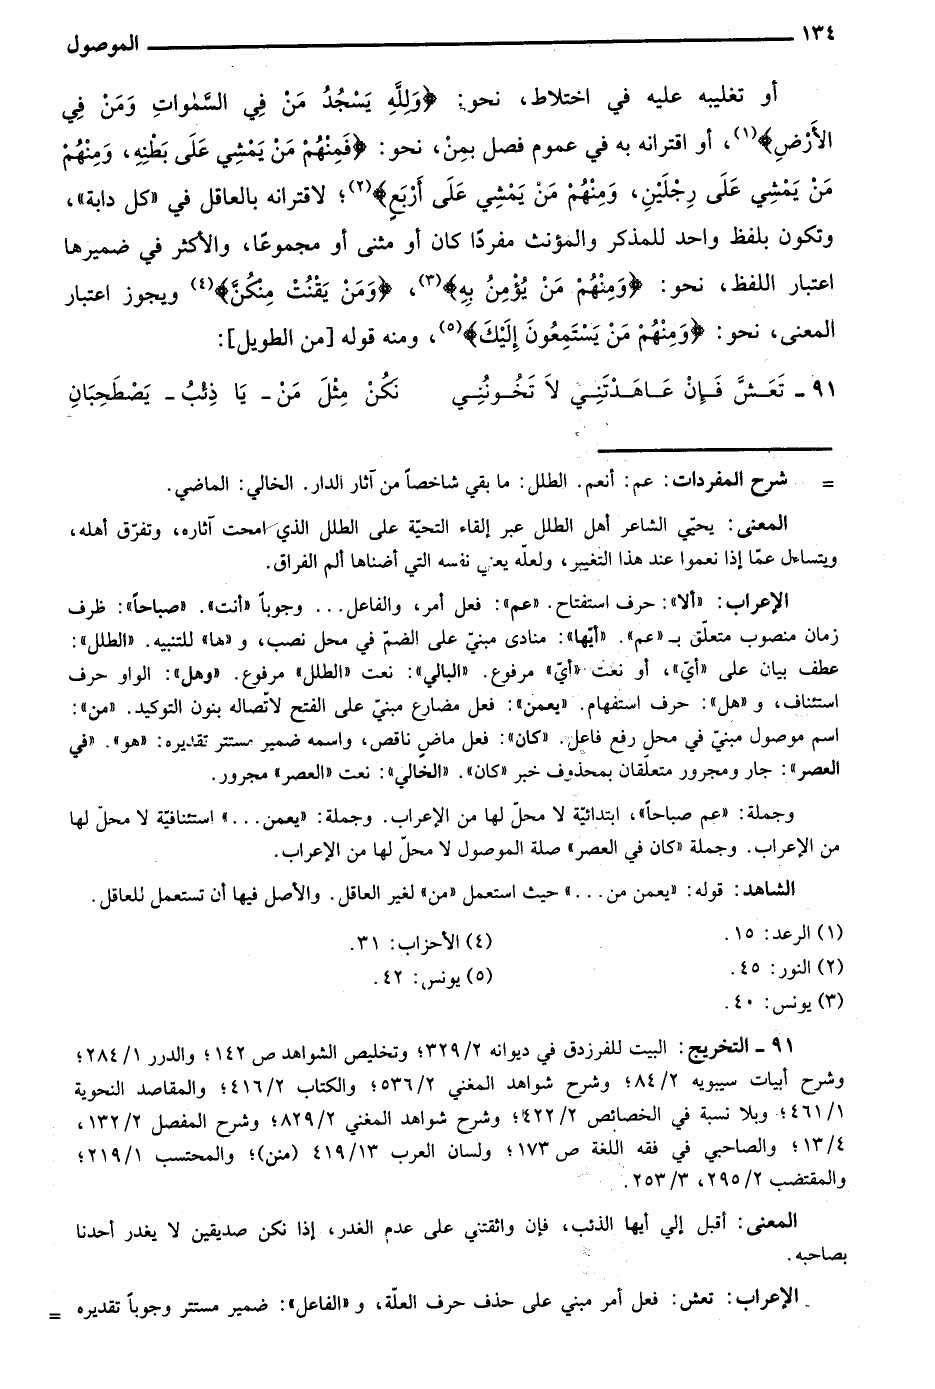 ١٣٤ الموصول
أو تغليبه عليه في اختلاط، نحو: ﴿وَلِلَّهِ يَسْجُدُ مَنْ فِي السَّمٰوَاتِ وَمَنْ فِي
الأَرْضِ﴾(١)، أو اقترانه به في عموم فصل بمِنْ، نحو: ﴿فَمِنْهُمْ مَنْ يَمْشِي عَلَى بَطْنِهِ، وَمِنْهُمْ
مَنْ يَمْشِي عَلَى رِجْلَيْنِ، وَمِنْهُمْ مَنْ يَمْشِي عَلَى أَرْبَعٍ﴾(٢)؛ لاقترانه بالعاقل في «كل دابة»،
وتكون بلفظ واحد للمذكر والمؤنث مفردًا كان أو مثنى أو مجموعًا، والأكثر في ضميرها
اعتبار اللفظ، نحو: ﴿وَمِنْهُمْ مَنْ يُؤْمِنُ بِهِ﴾(٣)، ﴿وَمَنْ يَقْنُتْ مِنْكُنَّ﴾(٤) ويجوز اعتبار
المعنى، نحو: ﴿وَمِنْهُمْ مَنْ يَسْتَمِعُونَ إِلَيْكَ﴾(٥)، ومنه قوله [من الطويل]:
٩١ ـ تَعَشَّ فَإِنْ عَاهَدْتَنِي لاَ تَخُونُنِي نَكُنْ مِثْلَ مَنْ ـ يَا ذِئْبُ ـ يَصْطَحِبَانِ
= شرح المفردات: عم: أنعم. الطلل: ما بقي شاخصاً من آثار الدار. الخالي: الماضي.
المعنى: يحيّي الشاعر أهل الطلل عبر إلقاء التحيّة على الطلل الذي امحت آثاره، وتفرّق أهله،
ويتساءل عمّا إذا نعموا عند هذا التغيير، ولعلّه يعني نفسه التي أضناها ألم الفراق.
الإعراب: «ألا»: حرف استفتاح. «عم»: فعل أمر، والفاعل... وجوباً «أنت». «صباحاً»: ظرف
زمان منصوب متعلّق بـ «عم». «أيّها»: منادى مبنيّ على الضمّ في محل نصب، و «ها» للتنبيه. «الطلل»:
عطف بيان على «أيّ»، أو نعت «أيّ» مرفوع. «البالي»: نعت «الطلل» مرفوع. «وهل»: الواو حرف
استئناف، و «هل»: حرف استفهام. «يعمن»: فعل مضارع مبنيّ على الفتح لاتّصاله بنون التوكيد. «من»:
اسم موصول مبنيّ في محل رفع فاعل. «كان»: فعل ماضٍ ناقص، واسمه ضمير مستتر تقديره: «هو». «في
العصر»: جار ومجرور متعلّقان بمحذوف خبر «كان». «الخالي»: نعت «العصر» مجرور.
وجملة: «عم صباحاً»، ابتدائيّة لا محلّ لها من الإعراب. وجملة: «يعمن...» استئنافيّة لا محلّ لها
من الإعراب. وجملة «كان في العصر» صلة الموصول لا محلّ لها من الإعراب.
الشاهد: قوله: «يعمن من...» حيث استعمل «من» لغير العاقل. والأصل فيها أن تستعمل للعاقل.
(١) الرعد: ١٥.
(٢) النور: ٤٥.
(٣) يونس: ٤٠.
(٤) الأحزاب: ٣١.
(٥) يونس: ٤٢.
٩١ ـ التخريج: البيت للفرزدق في ديوانه ٣٢٩/٢؛ وتخليص الشواهد ص ١٤٢؛ والدرر ٢٨٤/١؛
وشرح أبيات سيبويه ٨٤/٢؛ وشرح شواهد المغني ٥٣٦/٢؛ والكتاب ٤١٦/٢؛ والمقاصد النحوية
٤٦١/١؛ وبلا نسبة في الخصائص ٤٢٢/٢؛ وشرح شواهد المغني ٨٢٩/٢؛ وشرح المفصل ١٣٢/٢،
١٣/٤؛ والصاحبي في فقه اللغة ص ١٧٣؛ ولسان العرب ٤١٩/١٣ (منن)؛ والمحتسب ٢١٩/١؛
والمقتضب ٢٩٥/٢، ٢٥٣/٣.
المعنى: أقبل إلي أيها الذئب، فإن واثقتني على عدم الغدر، إذا نكن صديقين لا يغدر أحدنا
بصاحبه.
الإعراب: تعش: فعل أمر مبني على حذف حرف العلّة، و «الفاعل»: ضمير مستتر وجوباً تقديره =